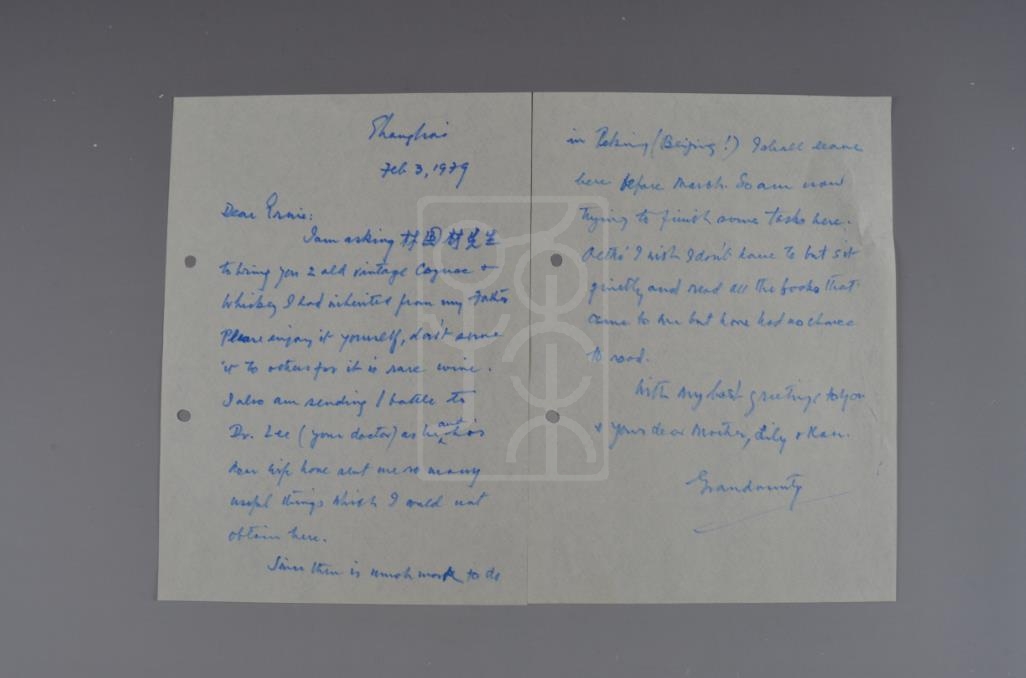 Shanghai
Feb 3, 1979
Dear Ernie:
I am asking 林国材先生
to bring you 2 old vintage Cognac +
Whiskey I had inherited from my Father
Please enjoy it yourself, don't serve
it to others for it is rare wine.
I also am sending 1 bottle to
Dr. Lee (your doctor) as he and his
dear wife have sent me so many
useful things which I could not
obtain here.
Since there is much work to do
in Peking (Beijing!) I shall leave
here before March. So am now
trying to finish some tasks here.
Altho' I wish I don't have to but sit
quietly and read all the books that
came to me but have had no chance
to read.
With my best greetings to you
+ your dear Mother, Lily +
Grandaunty